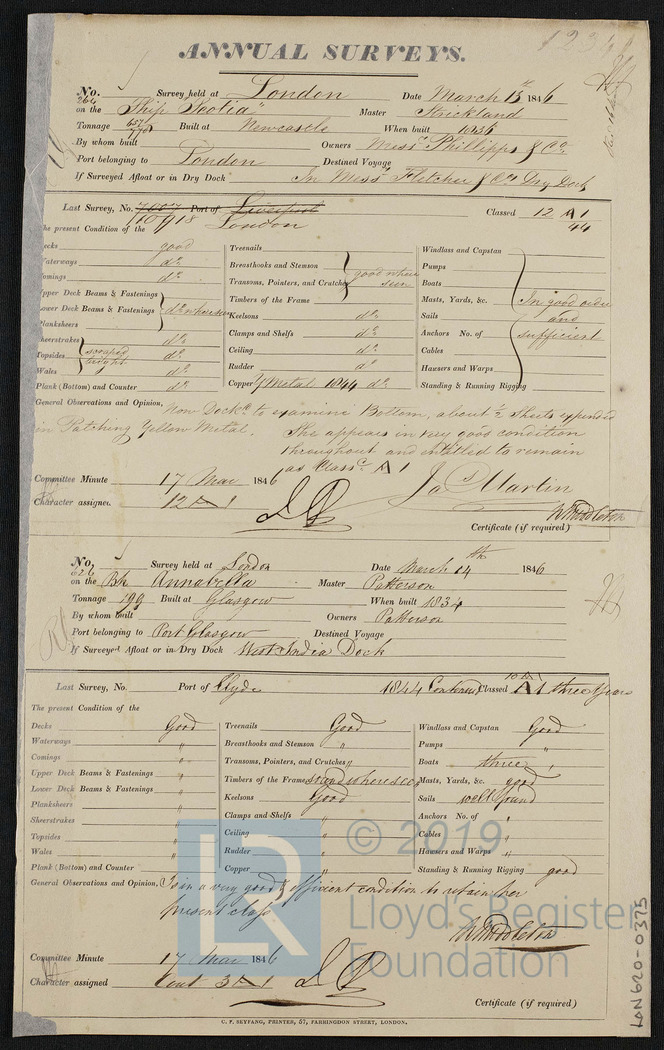 ANNUAL SURVEYS.
No. 264 Survey held at London Date March 13th 1846
on the Ship "Scotia" Master Strickland
Tonnage 657 / 778 Built at Newcastle When built 1836
By whom built Owners Messrs Phillipps & Co.
Port belonging to London Destined Voyage
If Surveyed Afloat or in Dry Dock In Messrs Fletcher & Cos Dry Dock
Last Survey, No. Port of Liverpool Classed 12 A 1
10918 London 44
The present Condition of the
Decks good Treenails Windlass and Capstan
Waterways do Breasthooks and Stemson Pumps
Comings do Transoms, Pointers, and Crutches good where seen Boats
Upper Deck Beams & Fastenings Timbers of the Frame Masts, Yards, &c. In good order
Lower Deck Beams & Fastenings do where seen Keelsons do Sails and
Planksheers Clamps and Shelfs do Anchors No. of sufficient
Sheerstrakes do Ceiling do Cables
Topsides scraped bright do Rudder do Hausers and Warps
Wales do Copper Y Metal 1844 do Standing & Running Rigging
Plank (Bottom) and Counter do
General Observations and Opinion, Now Dockd to examine Bottom, about ½ Sheets expended
in Patching Yellow Metal. She appears in very good condition
throughout and intitled to remain
as Classd A 1
Committee Minute 17 Mar 1846 Jas Martin
Character assigned 12 A 1 W Middleton
Certificate (if required)
No. 626 Survey held at London Date March 14th 1846
on the Bk Annabella Master Patterson
Tonnage 199 Built at Glasgow When built 1834
By whom built Owners Patterson
Port belonging to Port Glasgow Destined Voyage
If Surveyed Afloat or in Dry Dock West India Dock
Last Survey, No. Port of Clyde 1844 Continued Classed 10 A 1 three Years
The present Condition of the
Decks Good Treenails Good Windlass and Capstan Good
Waterways " Breasthooks and Stemson " Pumps "
Comings " Transoms, Pointers, and Crutches " Boats three
Upper Deck Beams & Fastenings " Timbers of the Frame sound where seen Masts, Yards, &c. good
Lower Deck Beams & Fastenings " Keelsons Good Sails well found
Planksheers " Clamps and Shelfs " Anchors No. of "
Sheerstrakes " Ceiling " Cables "
Topsides " Rudder " Hausers and Warps "
Wales " Copper " Standing & Running Rigging good
Plank (Bottom) and Counter "
General Observations and Opinion, Is in a very good & efficient condition to retain her
present class
W Middleton
Committee Minute 17 Mar 1846
Character assigned Cont 3 A 1
Certificate (if required)
C. F. SEYFANG, PRINTER, 57, FARRINGDON STREET, LONDON.
LON620-0375
LR
© 2019
Lloyd's Register
Foundation